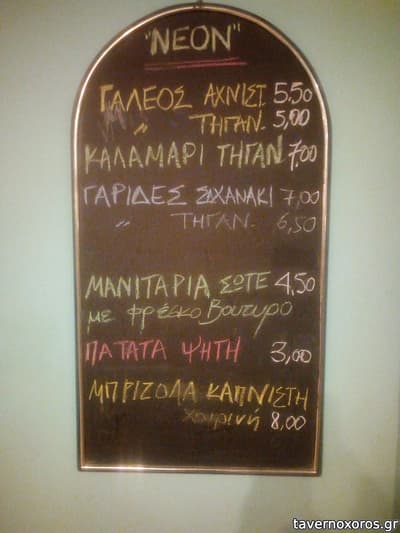 "ΝΕΟΝ"
ΓΑΛΕΟΣ ΑΧΝΙΣΤ. 5.50
〃 ΤΗΓΑΝ. 5,00
ΚΑΛΑΜΑΡΙ ΤΗΓΑΝ 7,00
ΓΑΡΙΔΕΣ ΣΑΧΑΝΑΚΙ 7,00
〃 ΤΗΓΑΝ. 6,50
ΜΑΝΙΤΑΡΙΑ ΣΩΤΕ 4,50
με φρέσκο Βουτυρο
ΠΑΤΑΤΑ ΨΗΤΗ 3,00
ΜΠΡΙΖΟΛΑ ΚΑΠΝΙΣΤΗ
χοιρινή 8,00
tavernoxoros.gr